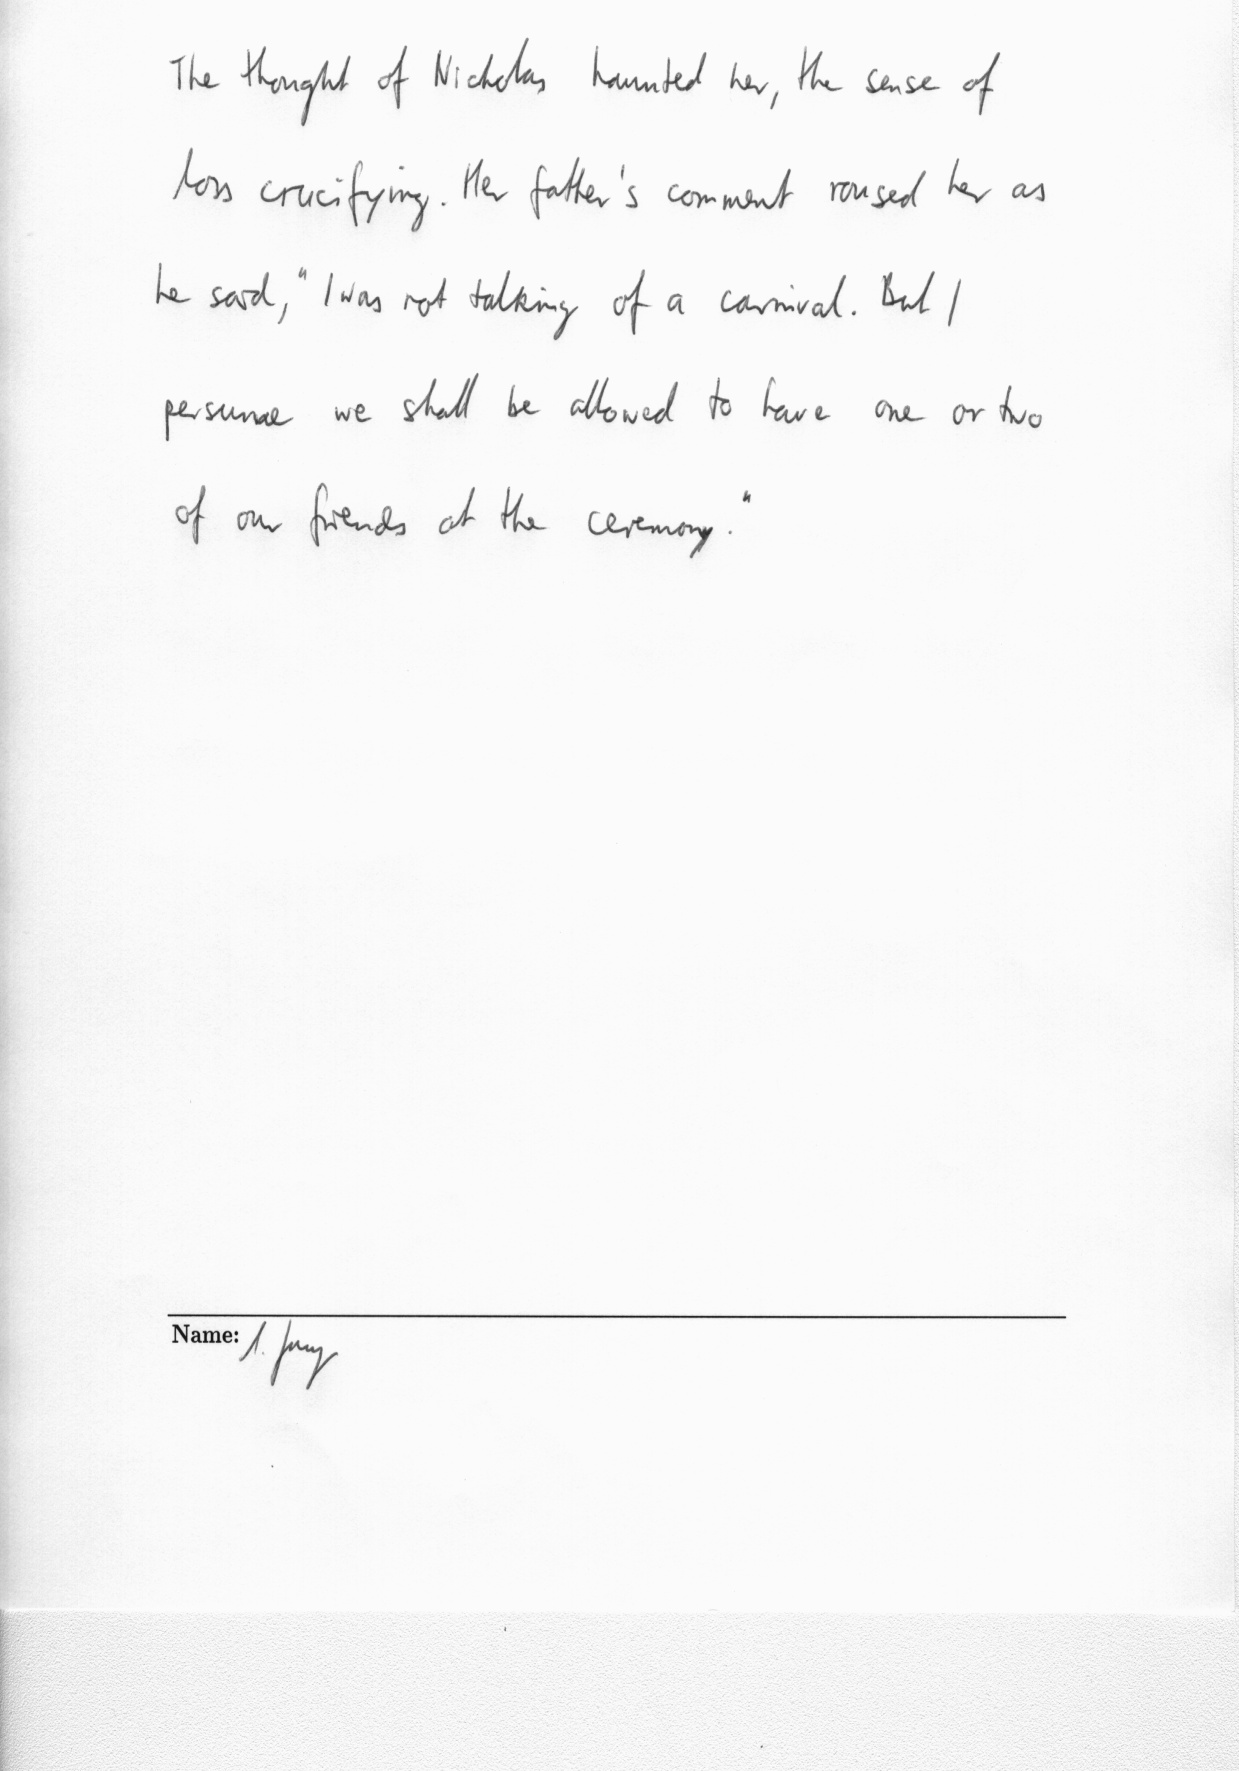 The thought of Nicholas haunted her, the sense of
loss crucifying. Her father's comment roused her as
he said, "I was not talking of a carnival. But I
persume we shall be allowed to have one or two
of our friends at the ceremony."
Name: